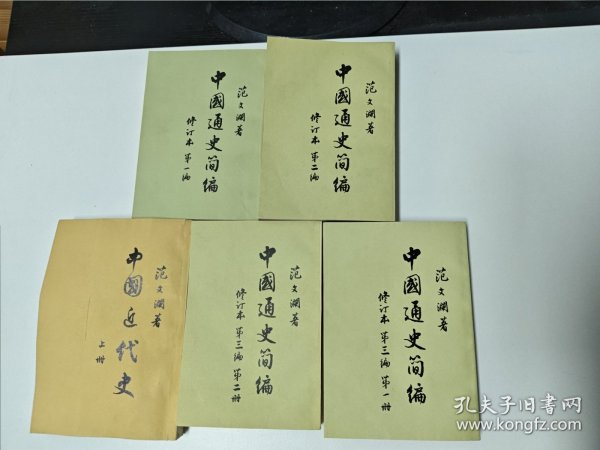 范文澜著
中國通史简编
修订本 第一编
范文澜著
中國通史简编
修订本 第二编
范文澜著
中國近代史
上册
范文澜著
中國通史简编
修订本 第三编 第二册
范文澜著
中國通史简编
修订本 第三编 第一册
孔夫子旧书网
www.kongfz.com